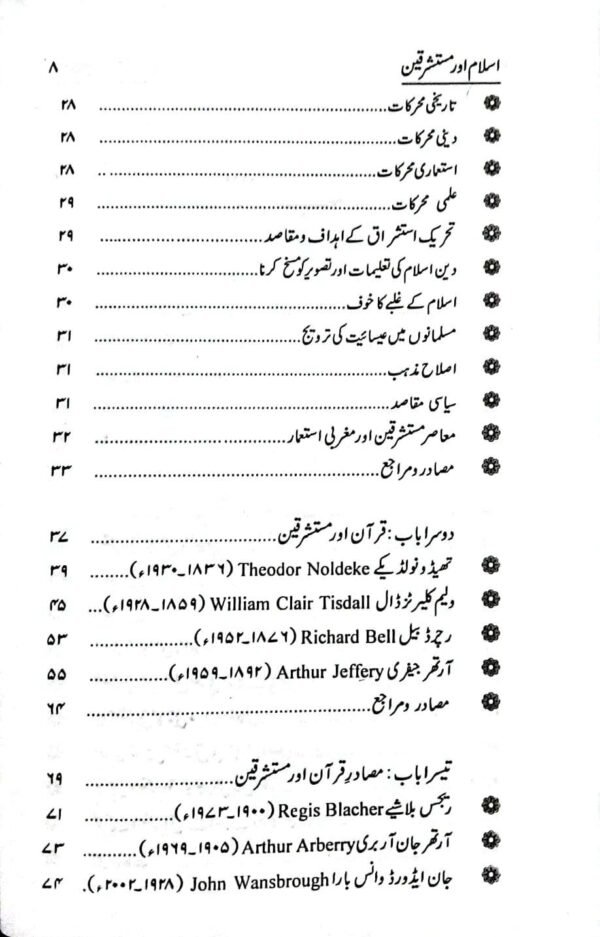 اسلام اور مستشرقین ۸
تاریخی محرکات ۲۸
دینی محرکات ۲۸
استعماری محرکات ۲۸
علمی محرکات ۲۹
تحریک استشراق کے اہداف و مقاصد ۲۹
دین اسلام کی تعلیمات اور تصویر کو مسخ کرنا ۳۰
اسلام کے غلبے کا خوف ۳۰
مسلمانوں میں عیسائیت کی ترویج ۳۱
اصلاح مذہب ۳۱
سیاسی مقاصد ۳۱
معاصر مستشرقین اور مغربی استعمار ۳۲
مصادر و مراجع ۳۳
دوسرا باب: قرآن اور مستشرقین ۳۷
تھیڈو نولڈیکے Theodor Noldeke (۱۸۳۶ـ۱۹۳۰ء) ۳۹
ولیم کلیر ٹزڈال William Clair Tisdall (۱۸۵۹ـ۱۹۲۸ء) ۴۵
رچرڈ بیل Richard Bell (۱۸۷۶ـ۱۹۵۲ء) ۵۳
آرتھر جیفری Arthur Jeffery (۱۸۹۲ـ۱۹۵۹ء) ۵۵
مصادر و مراجع ۶۴
تیسرا باب: مصادرِ قرآن اور مستشرقین ۶۹
ریجس بلاشے Regis Blacher (۱۹۰۰ـ۱۹۷۳ء) ۷۱
آرتھر جان آربری Arthur Arberry (۱۹۰۵ـ۱۹۶۹ء) ۷۳
جان ایڈورڈ وانس بارا John Wansbrough (۱۹۲۸ـ۲۰۰۲ء) ۷۴